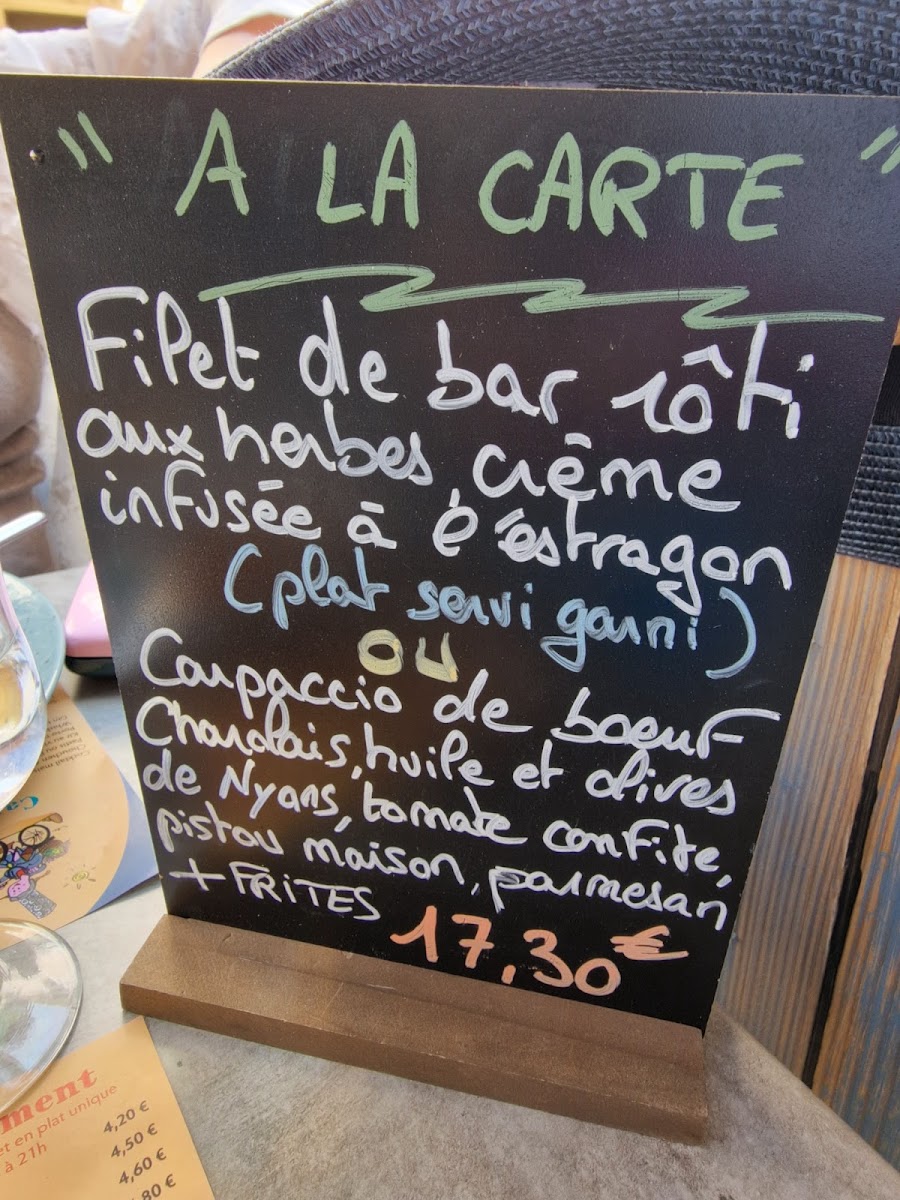 " A LA CARTE "
Filet de bar rôti
aux herbes, crème
infusée à l'éstragon
(plat servi garni)
OU
Carpaccio de boeuf
Charolais, huile et olives
de Nyons, tomate confite,
pistou maison, parmesan
+ FRITES
17,30 €
ment
et en plat unique
à 21h
4,20 €
4,50 €
4,60 €
,80 €